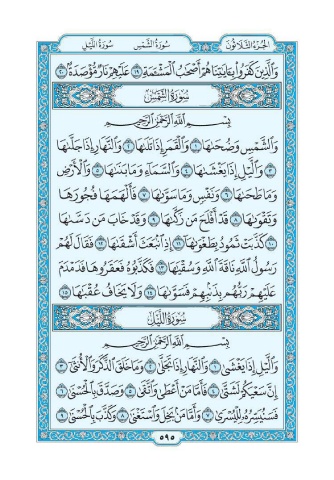 الجزء الثلاثون سورة الشمس سورة الليل
وَالَّذِينَ كَفَرُوا۟ بِـَٔايَـٰتِنَا هُمْ أَصْحَـٰبُ ٱلْمَشْـَٔمَةِ ١٩ عَلَيْهِمْ نَارٌ مُّؤْصَدَةٌۢ ٢٠
سُورَةُ الشَّمْسِ
بِسْمِ ٱللَّهِ ٱلرَّحْمَـٰنِ ٱلرَّحِيمِ
وَٱلشَّمْسِ وَضُحَىٰهَا ١ وَٱلْقَمَرِ إِذَا تَلَىٰهَا ٢ وَٱلنَّهَارِ إِذَا جَلَّىٰهَا
٣ وَٱلَّيْلِ إِذَا يَغْشَىٰهَا ٤ وَٱلسَّمَآءِ وَمَا بَنَىٰهَا ٥ وَٱلْأَرْضِ
وَمَا طَحَىٰهَا ٦ وَنَفْسٍ وَمَا سَوَّىٰهَا ٧ فَأَلْهَمَهَا فُجُورَهَا
وَتَقْوَىٰهَا ٨ قَدْ أَفْلَحَ مَن زَكَّىٰهَا ٩ وَقَدْ خَابَ مَن دَسَّىٰهَا
١٠ كَذَّبَتْ ثَمُودُ بِطَغْوَىٰهَآ ١١ إِذِ ٱنۢبَعَثَ أَشْقَىٰهَا ١٢ فَقَالَ لَهُمْ
رَسُولُ ٱللَّهِ نَاقَةَ ٱللَّهِ وَسُقْيَـٰهَا ١٣ فَكَذَّبُوهُ فَعَقَرُوهَا فَدَمْدَمَ
عَلَيْهِمْ رَبُّهُم بِذَنۢبِهِمْ فَسَوَّىٰهَا ١٤ وَلَا يَخَافُ عُقْبَـٰهَا ١٥
سُورَةُ اللَّيْلِ
بِسْمِ ٱللَّهِ ٱلرَّحْمَـٰنِ ٱلرَّحِيمِ
وَٱلَّيْلِ إِذَا يَغْشَىٰ ١ وَٱلنَّهَارِ إِذَا تَجَلَّىٰ ٢ وَمَا خَلَقَ ٱلذَّكَرَ وَٱلْأُنثَىٰٓ ٣
إِنَّ سَعْيَكُمْ لَشَتَّىٰ ٤ فَأَمَّا مَنْ أَعْطَىٰ وَٱتَّقَىٰ ٥ وَصَدَّقَ بِٱلْحُسْنَىٰ ٦
فَسَنُيَسِّرُهُۥ لِلْيُسْرَىٰ ٧ وَأَمَّا مَنۢ بَخِلَ وَٱسْتَغْنَىٰ ٨ وَكَذَّبَ بِٱلْحُسْنَىٰ ٩
٥٩٥